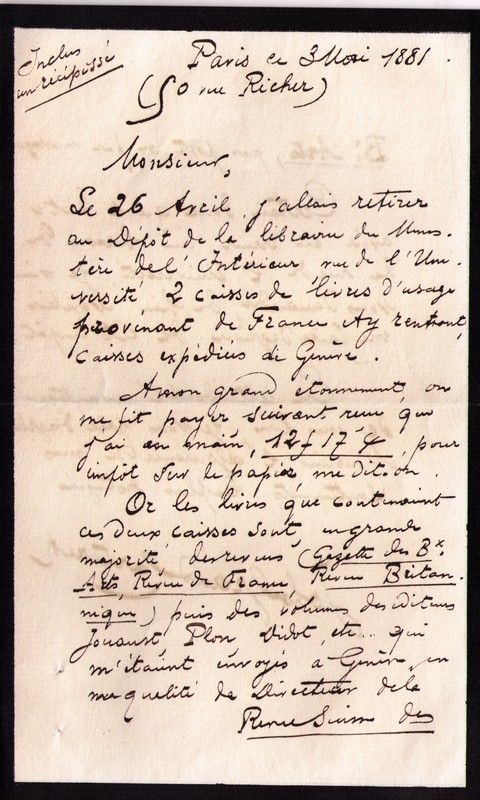 Inclus
un récépissé
Paris ce 3 Mai 1881.
(50 rue Richer)
Monsieur,
Le 26 Avril, j'allais retirer
au Dépôt de la librairie du Minis-
tère de l'Intérieur rue de l'Uni-
versité 2 caisses de livres d'usage
provenant de France et y rentrant,
caisses expédiées de Genève.
A mon grand étonnement, on
me fit payer suivant reçu que
j'ai en main, 12f 17c, pour
impôt sur le papier, me dit-on.
Or les livres que contenaient
ces deux caisses sont, en grande
majorité, des revues (Gazette des Bx.
Arts, Revue de France, Revue Britan-
nique) puis des volumes des éditeurs
Jouaust, Plon, Didot, etc... qui
m'étaient envoyés à Genève, en
ma qualité de Directeur de la
Revue Suisse des